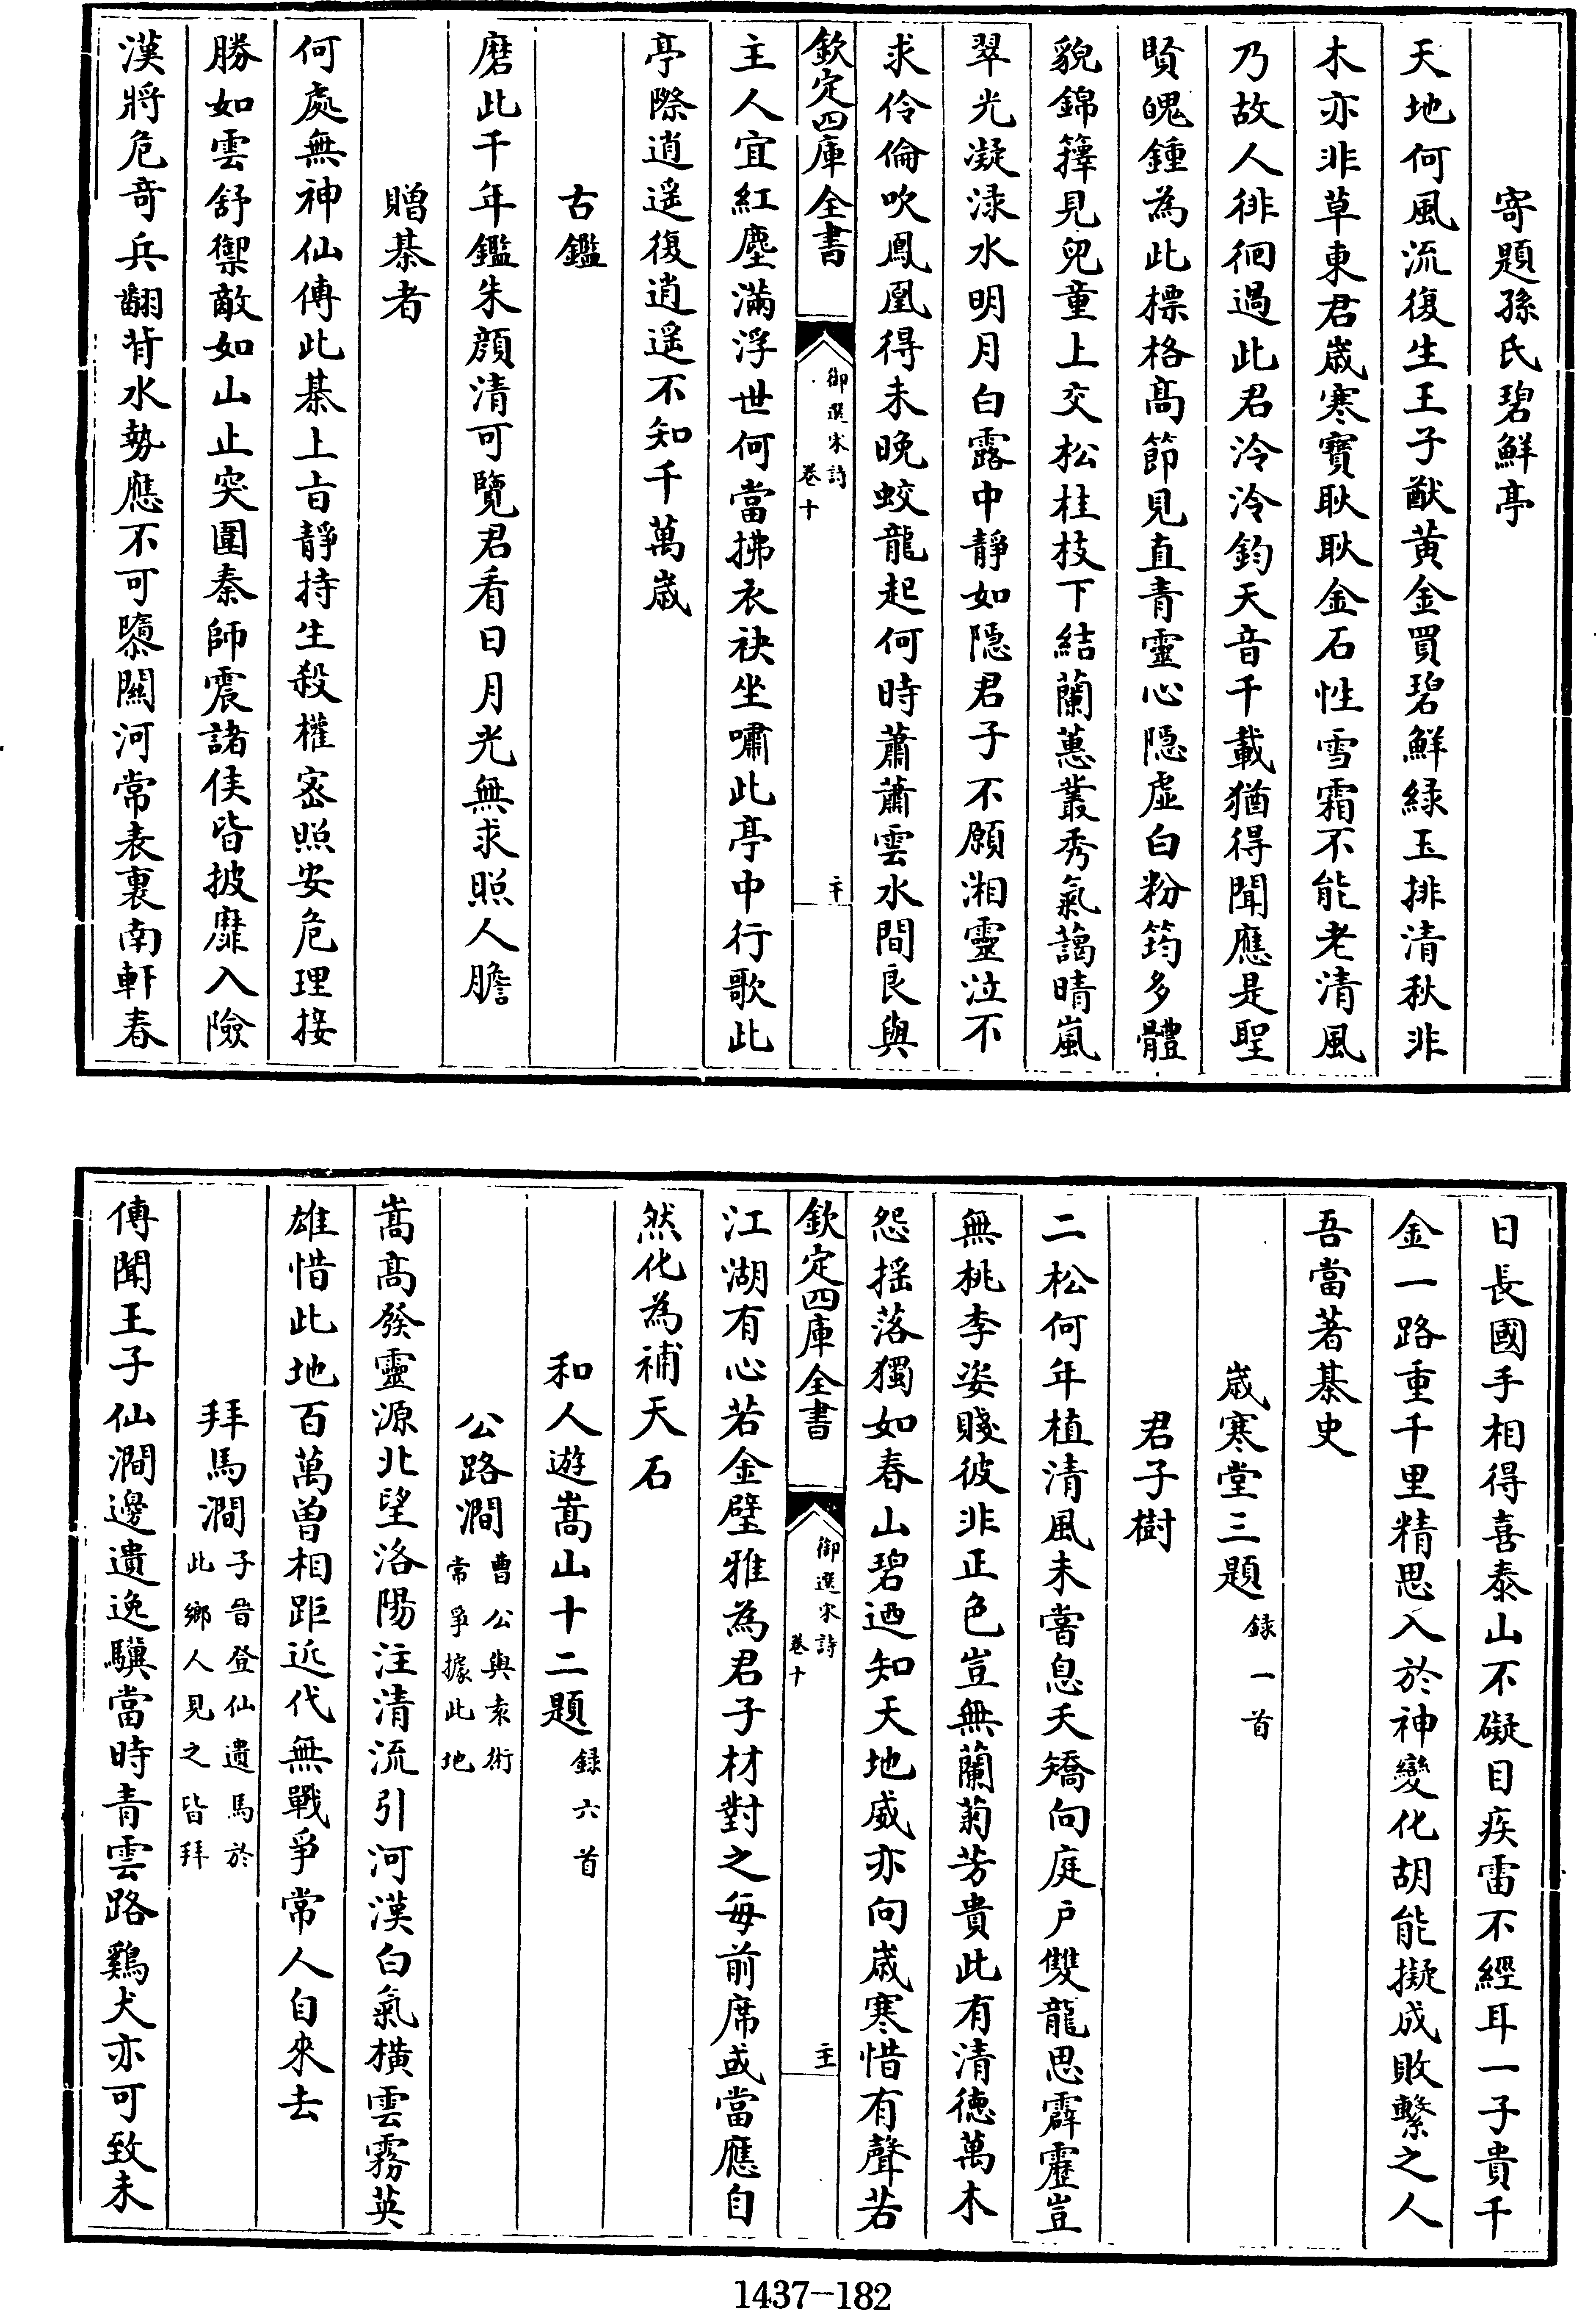 寄題孫氏碧鮮亭
天地何風流復生王子猷黄金買碧鮮緑玉排清秋非
木亦非草東君嵗寒寳耿耿金石性雪霜不能老清風
乃故人徘徊過此君泠泠鈞天音千載猶得聞應是聖
賢魄鍾為此標格髙節見直青靈心隠虚白粉筠多體
貌錦籜見兒童上交松桂枝下結蘭蕙叢秀氣藹晴嵐
翠光凝渌水明月白露中靜如隠君子不願湘靈泣不
求伶倫吹鳳凰得未晚蛟龍起何時蕭蕭雲水間良與
欽定四庫全書
御選宋詩
卷十
主人宜紅塵滿浮世何當拂衣袂坐嘯此亭中行歌此
亭際逍遥復逍遥不知千萬嵗
古鑑
磨此千年鑑朱顔清可覽君看日月光無求照人膽
贈棊者
何處無神仙傳此棊上㫖靜持生殺權宻照安危理接
勝如雲舒禦敵如山止突圍秦師震諸侯皆披靡入險
漢將危竒兵翻背水勢應不可隳闗河常表裏南軒春
日長國手相得喜泰山不礙目疾雷不經耳一子貴千
金一路重千里精思入於神變化胡能擬成敗繫之人
吾當著棊史
嵗寒堂三題 録一首
君子樹
二松何年植清風未嘗息夭矯向庭户雙龍思霹靂豈
無桃李姿賤彼非正色豈無蘭菊芳貴此有清德萬木
怨揺落獨如春山碧迺知天地威亦向嵗寒惜有聲若
欽定四庫全書
御選宋詩
卷十
江湖有心若金璧雅為君子材對之每前席或當應自
然化為補天石
和人遊嵩山十二題 録六首
公路澗 曹公與袁術常爭據此地
嵩髙發靈源北望洛陽注清流引河漢白氣横雲霧英
雄惜此地百萬曾相距近代無戰爭常人自來去
拜馬澗 子晉登仙遺馬於此鄉人見之皆拜
傳聞王子仙澗邊遺逸驥當時青雲路鷄犬亦可致未
1437-182